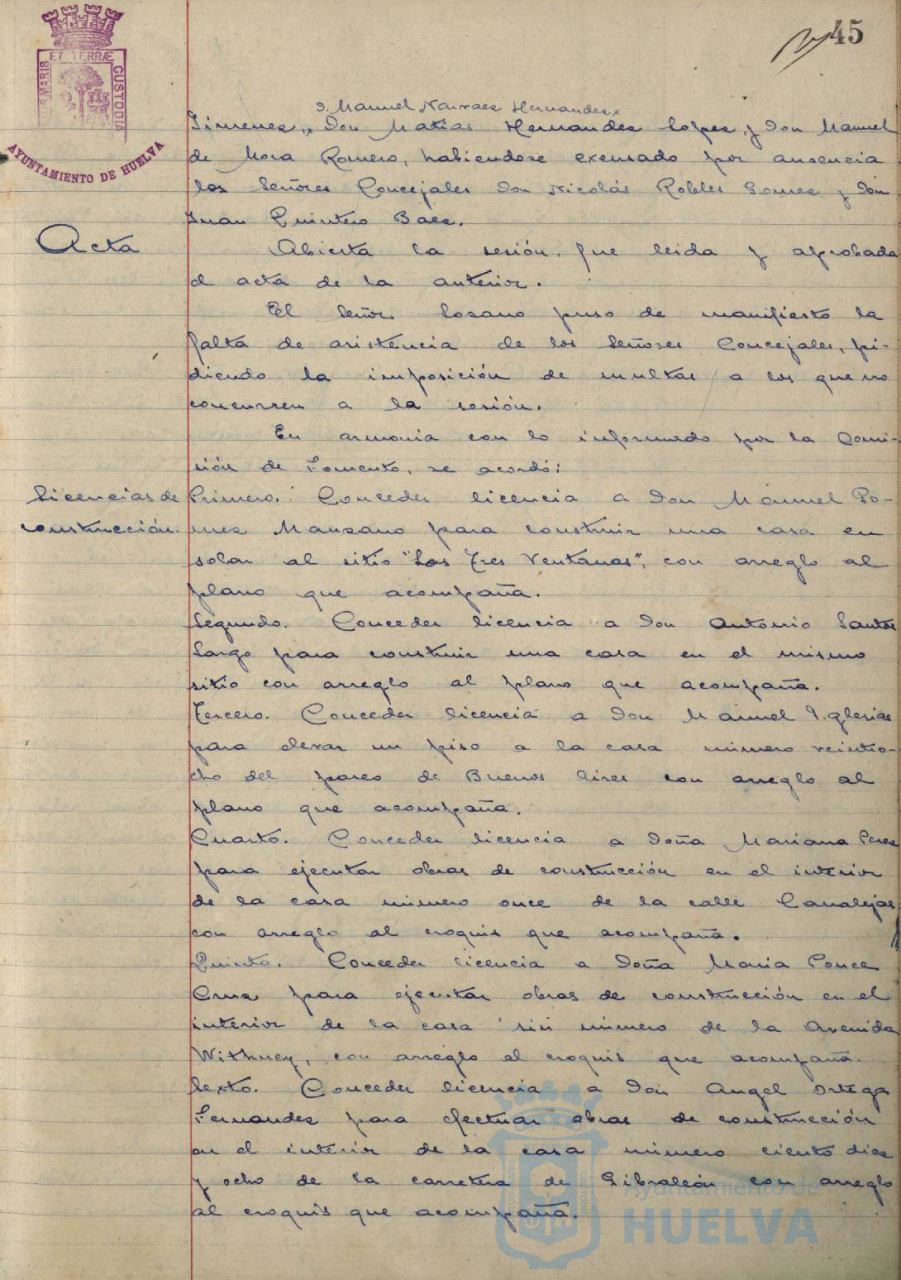 45
PORTUS MARIS ET TERRÆ CUSTODIA
AYUNTAMIENTO DE HUELVA
D. Manuel Narvaez Hernandez
Jimenez, Don Matias Hernandez Lopez, y Don Manuel
de Mora Romero, habiendose excusado por ausencia
los Señores Concejales Don Nicolás Robles Gomez y Don
Juan Quintero Baez.
Acta
Abierta la sesión, fue leida y aprobada
el acta de la anterior.
El Señor Lozano puso de manifiesto la
falta de asistencia de los Señores Concejales, pi-
diendo la imposición de multas a los que no
concurren a la sesión.
En armonia con lo informado por la Comi-
sión de Fomento, se acordó:
Licencias de
construcción.
Primero. Conceder licencia a Don Manuel Po-
nce Manzano para construir una casa en
solar al sitio "Las Tres Ventanas", con arreglo al
plano que acompaña.
Segundo. Conceder licencia a Don Antonio Santos
Largo para construir una casa en el mismo
sitio con arreglo al plano que acompaña.
Tercero. Conceder licencia a Don Manuel Iglesias
para elevar un piso a la casa número veintio-
cho del paseo de Buenos Aires con arreglo al
plano que acompaña.
Cuarto. Conceder licencia a Doña Mariana Perez
para ejecutar obras de construcción en el interior
de la casa número once de la calle Canalejas
con arreglo al croquis que acompaña.
Quinto. Conceder licencia a Doña Maria Ponce
Cruz para ejecutar obras de construcción en el
interior de la casa sin número de la Avenida
Withney, con arreglo al croquis que acompaña.
Sexto. Conceder licencia a Don Angel Ortega
Fernandez para efectuar obras de construcción
en el interior de la casa número ciento diez
y ocho de la carretera de Gibraleón con arreglo
al croquis que acompaña.
Ayuntamiento de
HUELVA